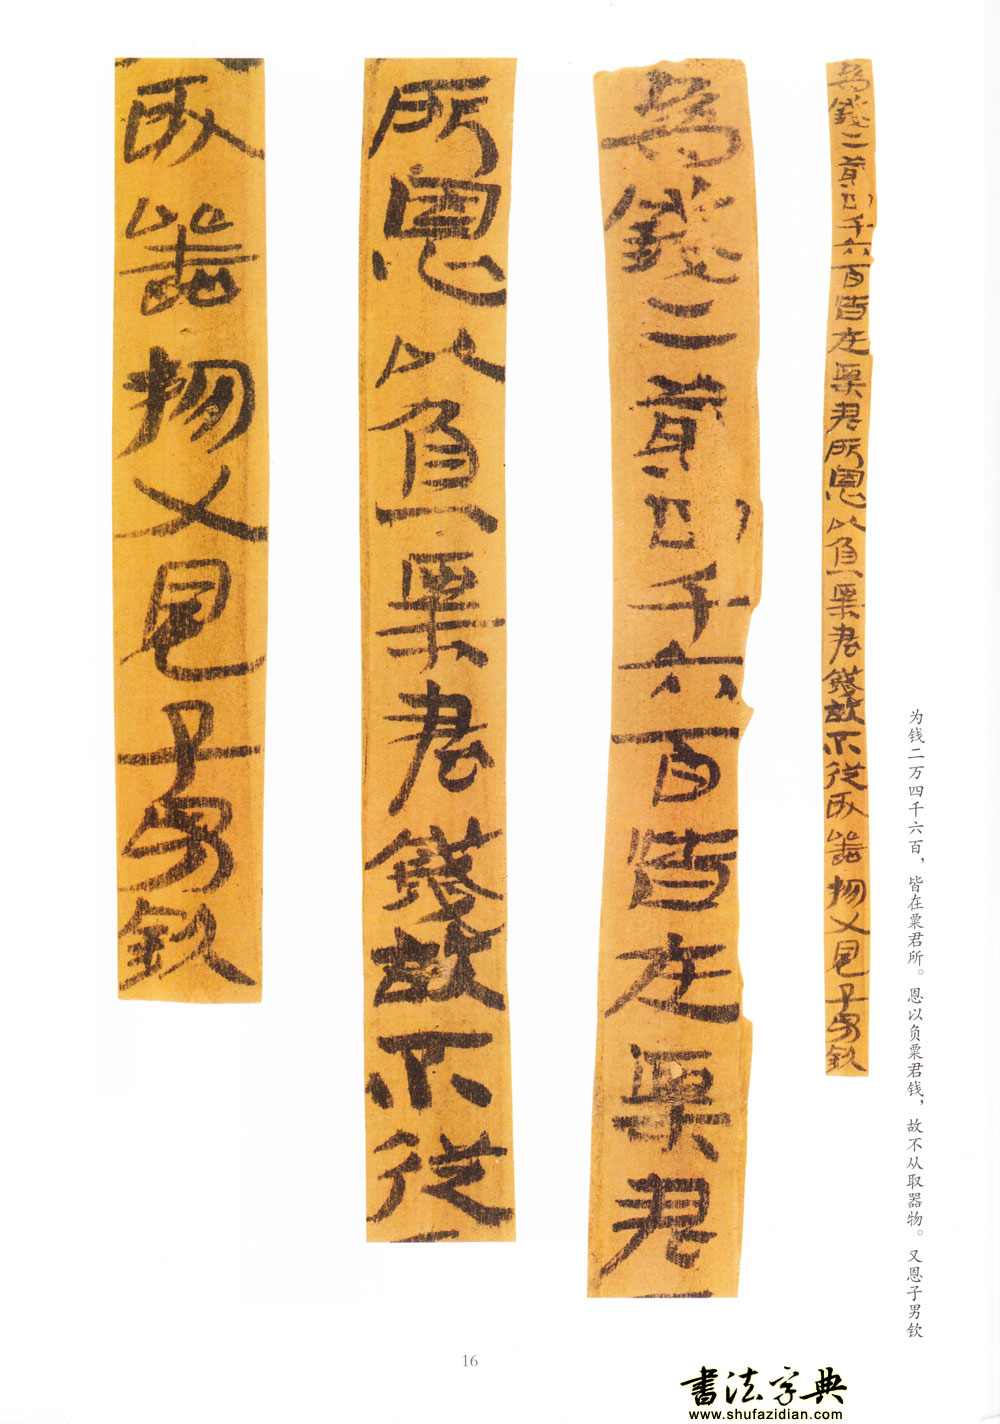 為錢二萬四千六百皆在粟君所恩以負粟君錢故不從取器物又恩子男欽
為錢二萬四千六百皆在粟君
所恩以負粟君錢故不從
取器物又恩子男欽
为钱二万四千六百，皆在粟君所。恩以负粟君钱，故不从取器物。又恩子男钦
16
書法字典
www.shufazidian.com